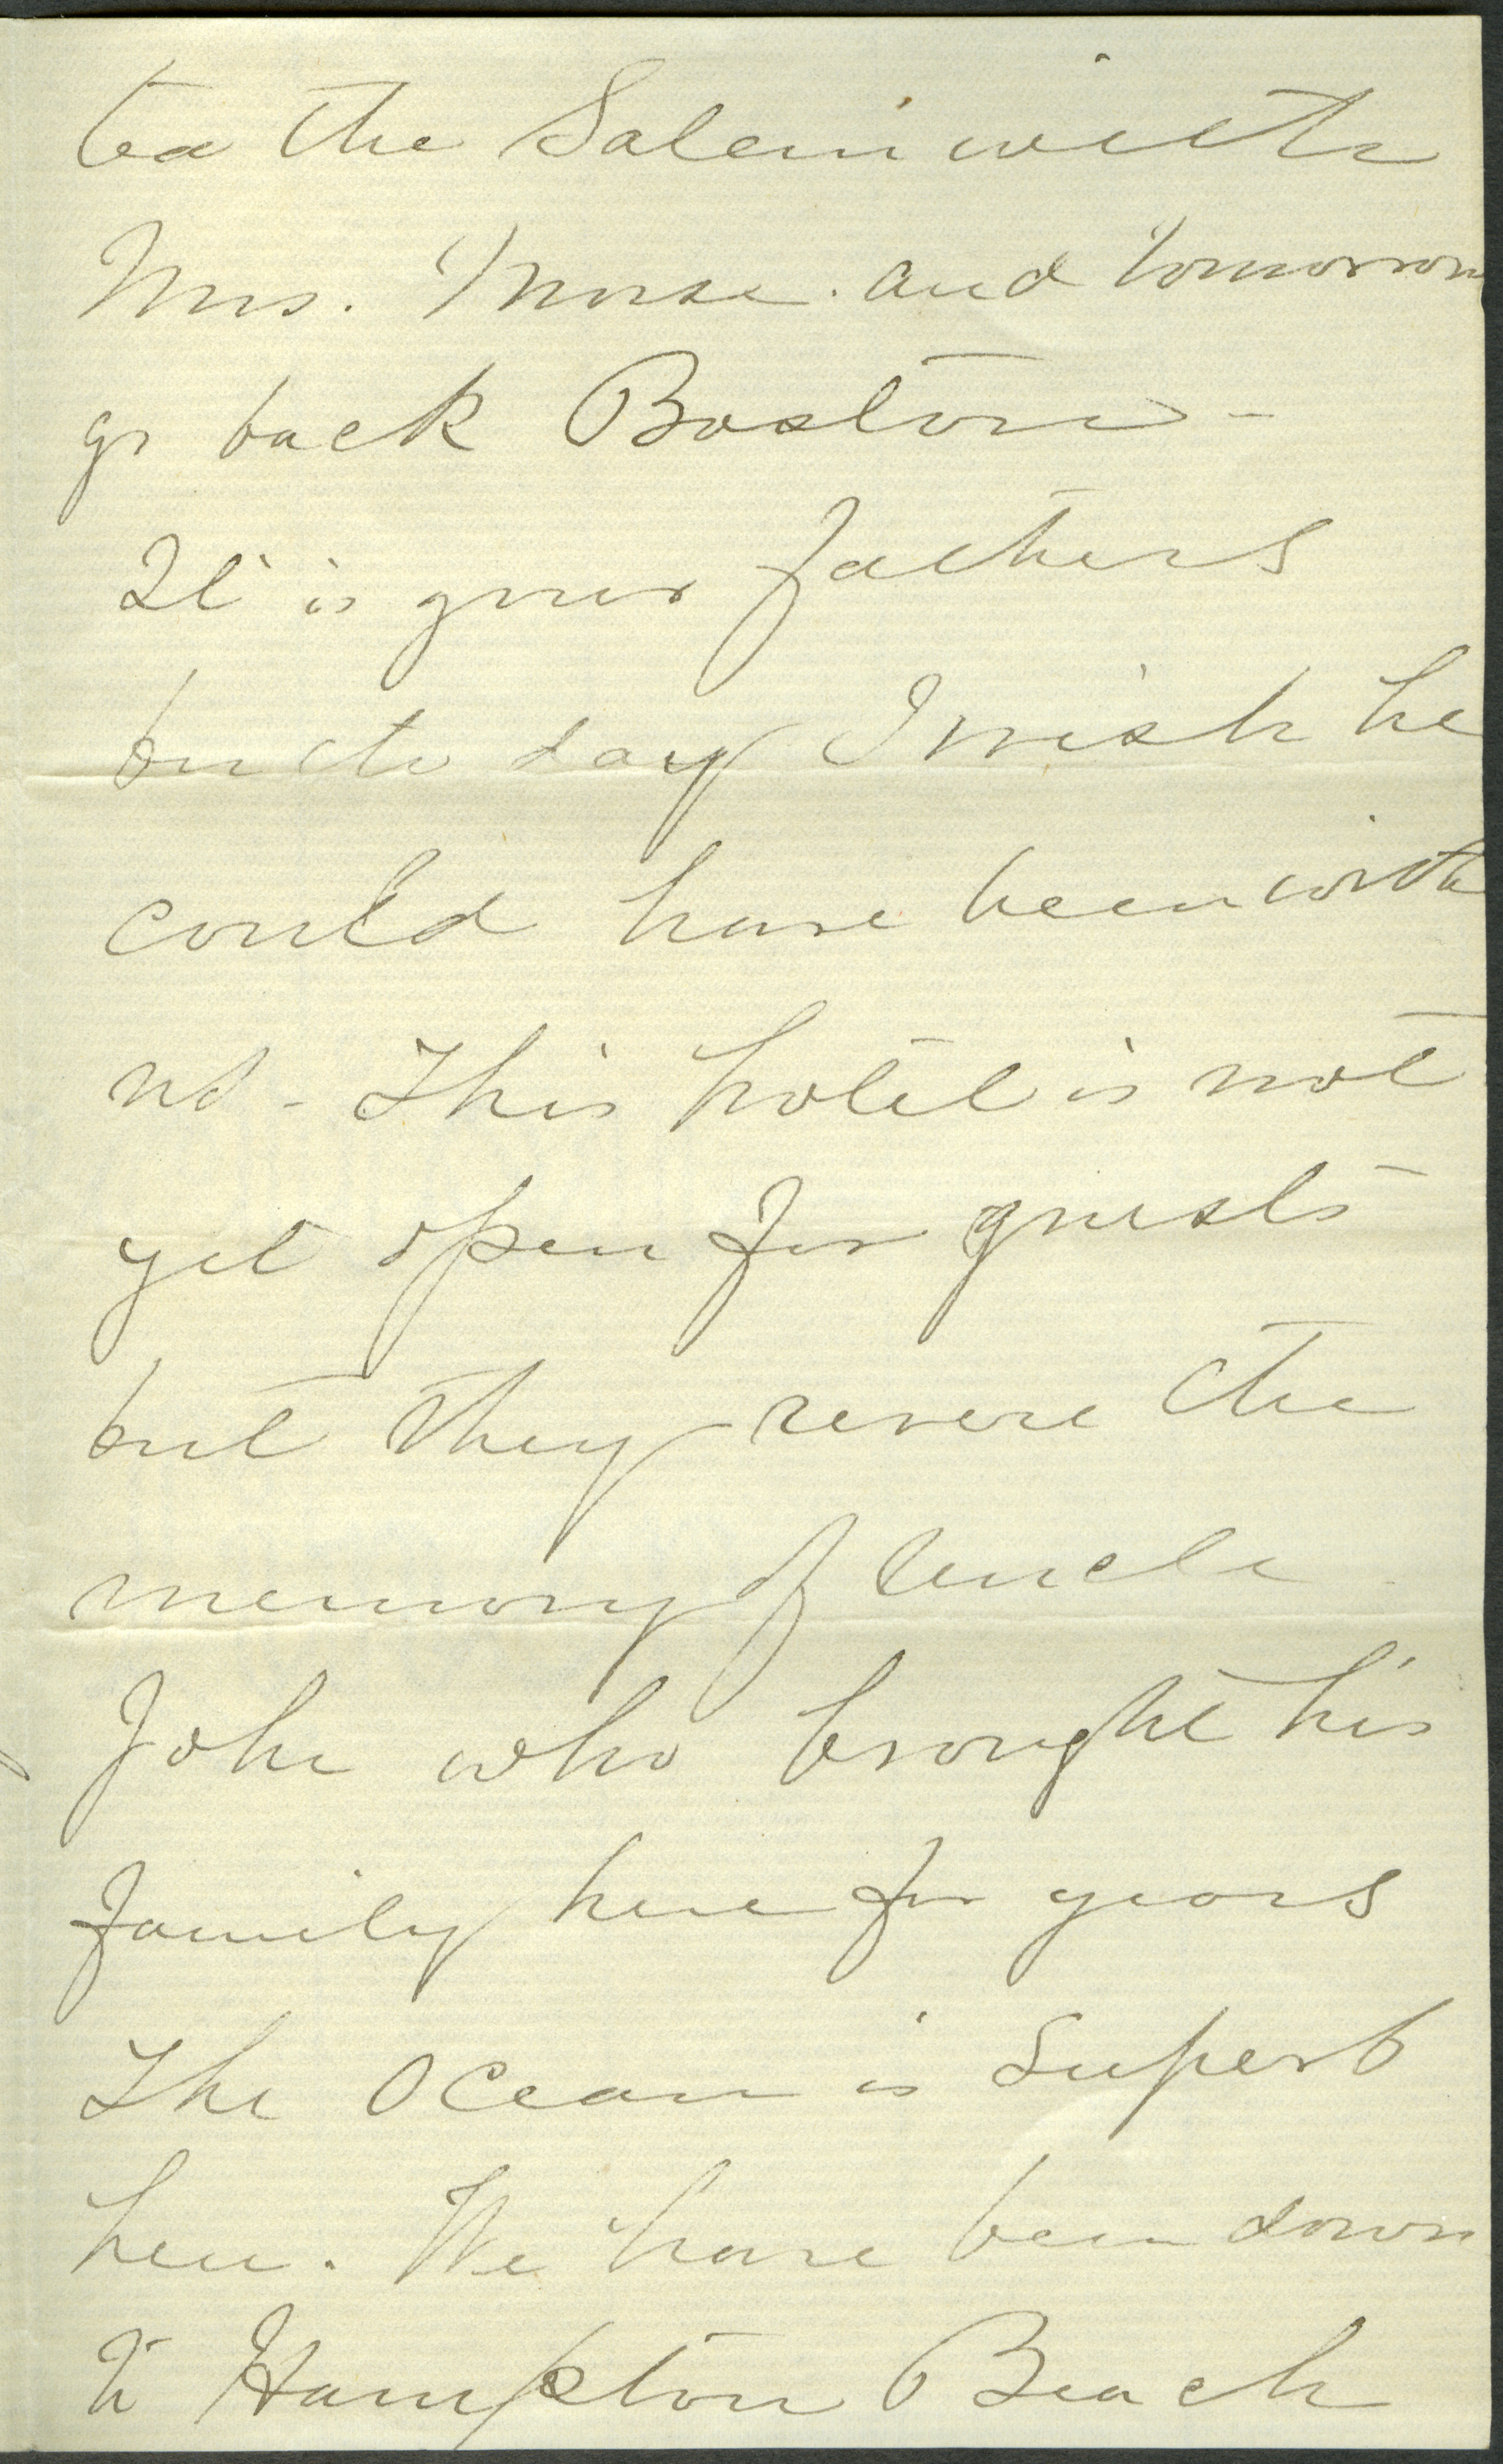 tea the Salem with
Mrs. Morse. and tomorrow
go back Boston -
It is your fathers
day I wish he
could have been with
us - This hotel is not
yet open for guests
but they revere the
memory of Uncle
John who brought his
family here for years
The Ocean is Superb
here. We have been down
to Hampton Beach